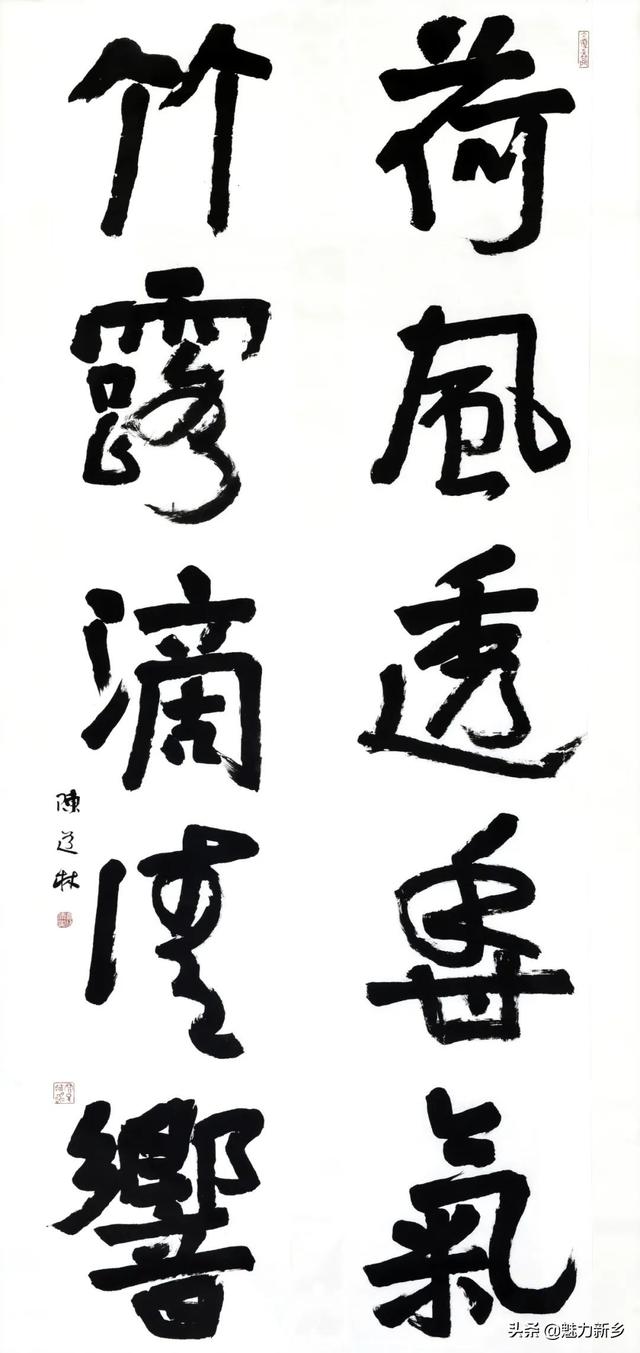 荷風透香氣
竹露滴清響
陳道林
头条 @魅力新乡